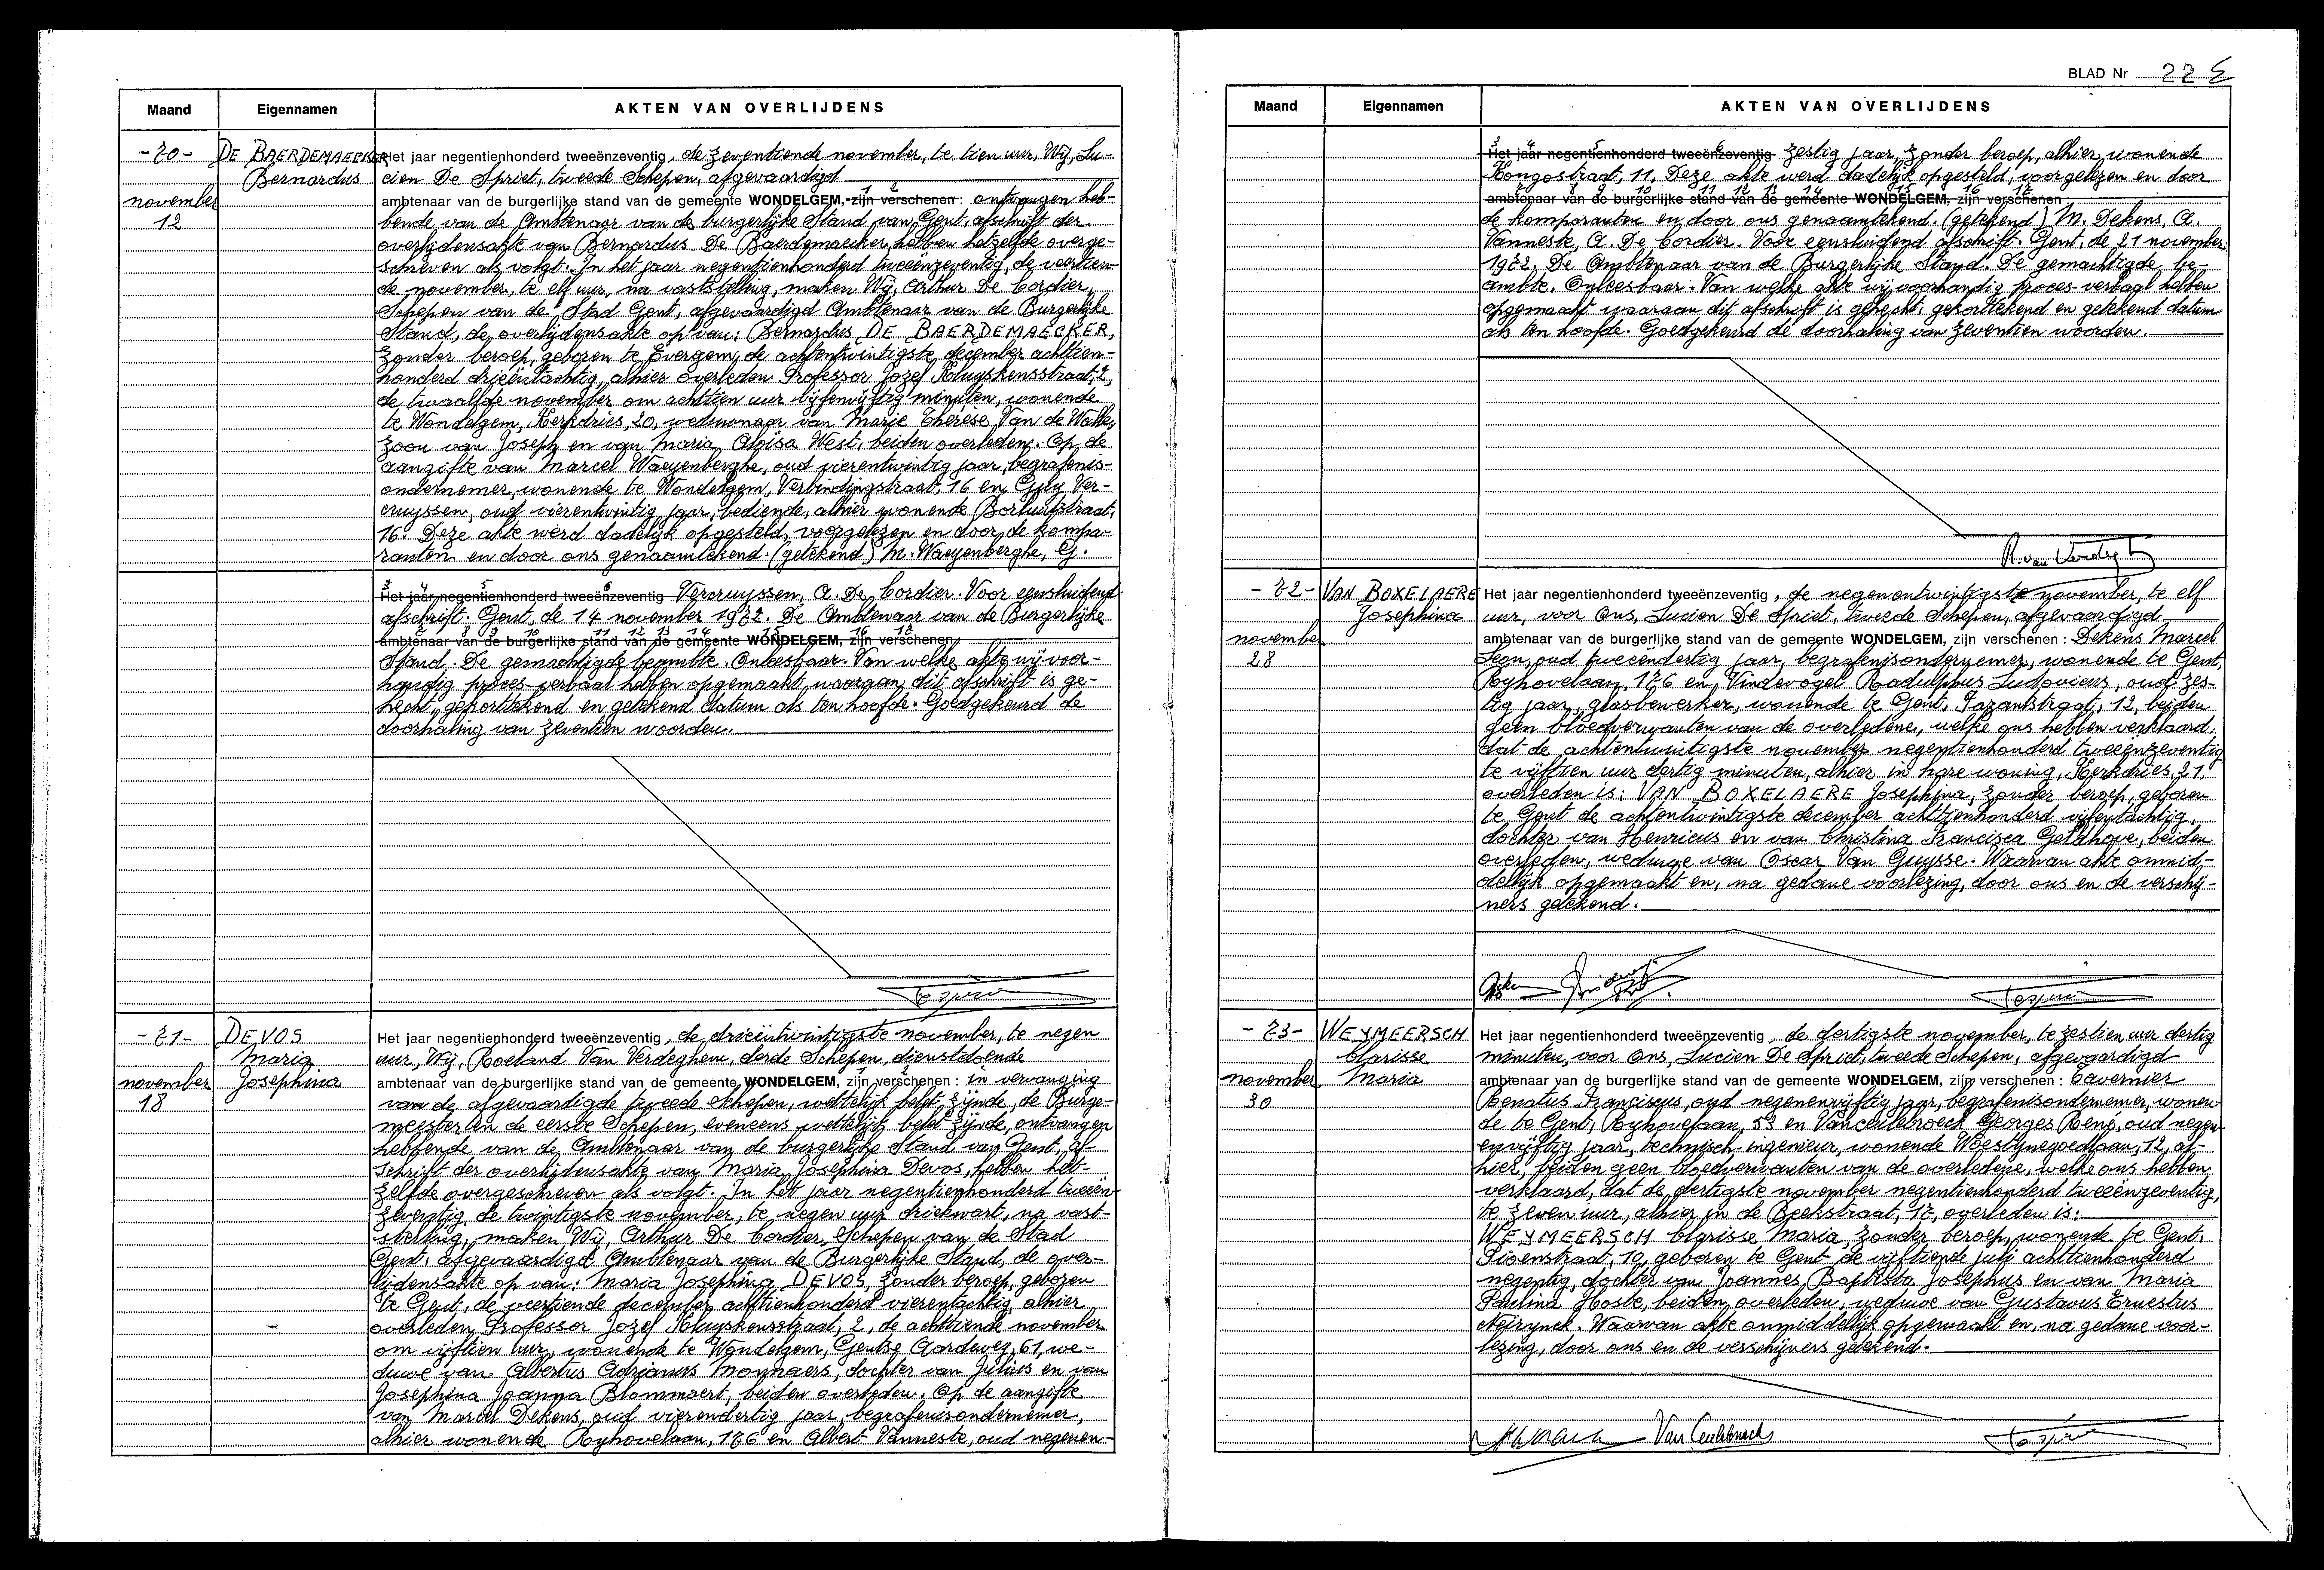 Maand Eigennamen AKTEN VAN OVERLIJDENS
-70- DE BAERDEMAECKER Het jaar negentienhonderd tweeënzeventig, de zeventiende november, te tien uur, Wij, Lu-
Bernardus cien De Spriet, tweede Schepen, afgevaardigd
november ambtenaar van de burgerlijke stand van de gemeente WONDELGEM, zijn verschenen : ontvangen heb-
12 bende van de Ambtenaar van de burgerlijke Stand van Gent afschrift der
overlijdensakte van Bernardus De Baerdemaecker, hebben hetzelfde overge-
schreven als volgt. In het jaar negentienhonderd tweeënzeventig, de veertien-
de november, te elf uur, na vaststelling, maken Wij, Arthur De Cordier,
Schepen van de Stad Gent, afgevaardigd Ambtenaar van de Burgerlijke
Stand, de overlijdensakte op van: Bernardus DE BAERDEMAECKER,
zonder beroep, geboren te Evergem, de achtentwintigste december achttien-
honderd drieëntachtig, alhier overleden Professor Jozef Kluyskensstraat, 2,
de twaalfde november om achttien uur vijfenvijftig minuten, wonende
te Wondelgem, Kerkdries, 20, weduwnaar van Marie Thérèse Van de Walle,
zoon van Joseph en van Maria Aloïsa West, beiden overleden. Op de
aangifte van Marcel Waeyenberghe, oud vierentwintig jaar, begrafenis-
ondernemer, wonende te Wondelgem, Verbindingstraat, 16 en Guy Ver-
cruyssen, oud vierentwintig jaar, bediende, alhier wonende Borluutstraat,
16. Deze akte werd dadelijk opgesteld, voorgelezen en door de kompa-
ranten en door ons genaamtekend. (getekend) M. Waeyenberghe, G.
Het jaar negentienhonderd tweeënzeventig Vercruyssen, A. De Cordier. Voor eensluidend
afschrift. Gent, de 14 november 1972. De Ambtenaar van de Burgerlijke
ambtenaar van de burgerlijke stand van de gemeente WONDELGEM, zijn verschenen
Stand. De gemachtigde beambte. Onleesbaar. Van welke akte wij voor-
handig proces-verbaal hebben opgemaakt, waaraan dit afschrift is ge-
hecht, gekorttekend en getekend datum als ten hoofde. Goedgekeurd de
doorhaling van zeventien woorden.
-71- DEVOS Het jaar negentienhonderd tweeënzeventig, de drieëntwintigste november, te negen
Maria uur, Wij, Roeland Van Verdeghem, derde Schepen, dienstdoende
november Josephina ambtenaar van de burgerlijke stand van de gemeente WONDELGEM, zijn verschenen : in vervanging
18 van de afgevaardigde tweede Schepen, wettelijk belet zijnde, de Burge-
meester en de eerste Schepen, eveneens wettelijk belet zijnde, ontvangen
hebbende van de Ambtenaar van de burgerlijke Stand van Gent, af-
schrift der overlijdensakte van Maria Josephina Devos, hebben het-
zelfde overgeschreven als volgt. In het jaar negentienhonderd tweeën-
zeventig, de twintigste november, te negen uur driekwart, na vast-
stelling, maken Wij, Arthur De Cordier, Schepen van de Stad
Gent, afgevaardigd Ambtenaar van de Burgerlijke Stand, de over-
lijdensakte op van: Maria Josephina DEVOS, zonder beroep, geboren
te Gent, de veertiende december achttienhonderd vierentachtig, alhier
overleden Professor Jozef Kluyskensstraat, 2, de achttiende november
om vijftien uur, wonende te Wondelgem, Gentse Aardeweg, 61, we-
duwe van Albertus Adrianus Monnaers, dochter van Julius en van
Josephina Joanna Blommaert, beiden overleden. Op de aangifte
van Marcel Dekens, oud vierendertig jaar, begrafenisondernemer,
alhier wonende Ryhovelaan, 176 en Albert Vanneste, oud negenen-
BLAD Nr 22
Maand Eigennamen AKTEN VAN OVERLIJDENS
Het jaar negentienhonderd tweeënzeventig zestig jaar, zonder beroep, alhier wonende
Kongostraat, 11. Deze akte werd dadelijk opgesteld, voorgelezen en door
ambtenaar van de burgerlijke stand van de gemeente WONDELGEM, zijn verschenen
de komparanten en door ons genaamtekend. (getekend) M. Dekens, A.
Vanneste, A. De Cordier. Voor eensluidend afschrift. Gent, de 21 november
1972. De Ambtenaar van de Burgerlijke Stand. De gemachtigde be-
ambte. Onleesbaar. Van welke akte wij voorhandig proces-verbaal hebben
opgemaakt waaraan dit afschrift is gehecht, gekorttekend en getekend datum
als ten hoofde. Goedgekeurd de doorhaling van zeventien woorden.
-72- VAN BOXELAERE Het jaar negentienhonderd tweeënzeventig, de negenentwintigste november, te elf
Josephina uur, voor Ons, Lucien De Spriet, tweede Schepen, afgevaardigd
november ambtenaar van de burgerlijke stand van de gemeente WONDELGEM, zijn verschenen : Dekens Marcel
28 Leon, oud tweeëndertig jaar, begrafenisondernemer, wonende te Gent,
Ryhovelaan, 176 en, Vindevogel Radulphus Ludovicus, oud zes-
tig jaar, glasbewerker, wonende te Gent, Fazantstraat, 12, beiden
geen bloedverwanten van de overledene, welke ons hebben verklaard,
dat de achtentwintigste november negentienhonderd tweeënzeventig
te vijftien uur dertig minuten, alhier in hare woning, Kerkdries, 21,
overleden is: VAN BOXELAERE Josephina, zonder beroep, geboren
te Gent de achtentwintigste december achttienhonderd vijfentachtig,
dochter van Henricus en van Christina Francisca Geldhove, beiden
overleden, weduwe van Oscar Van Guysse. Waarvan akte onmid-
dellijk opgemaakt en, na gedane voorlezing, door ons en de verschij-
ners getekend.
-73- WEYMEERSCH Het jaar negentienhonderd tweeënzeventig, de dertigste november, te zestien uur dertig
Clarisse minuten, voor Ons, Lucien De Spriet, tweede Schepen, afgevaardigd
november Maria ambtenaar van de burgerlijke stand van de gemeente WONDELGEM, zijn verschenen : Tavernier
30 Renatus Franciscus, oud negenenvijftig jaar, begrafenisondernemer, wonen-
de te Gent, Ryhovelaan, 53 en Vanceulebroeck Georges René, oud negen-
envijftig jaar, technisch-ingenieur, wonende Woestynegoedlaan, 12, al-
hier, beiden geen bloedverwanten van de overledene, welke ons hebben
verklaard, dat de dertigste november negentienhonderd tweeënzeventig,
te zeven uur, alhier in de Beekstraat, 17, overleden is:
WEYMEERSCH Clarisse Maria, zonder beroep, wonende te Gent,
Pioenstraat, 10, geboren te Gent de vijftiende juli achttienhonderd
negentig, dochter van Joannes Baptista Josephus en van Maria
Paulina Hoste, beiden overleden, weduwe van Gustavus Ernestus
Neirynck. Waarvan akte onmiddellijk opgemaakt en, na gedane voor-
lezing, door ons en de verschijners getekend.